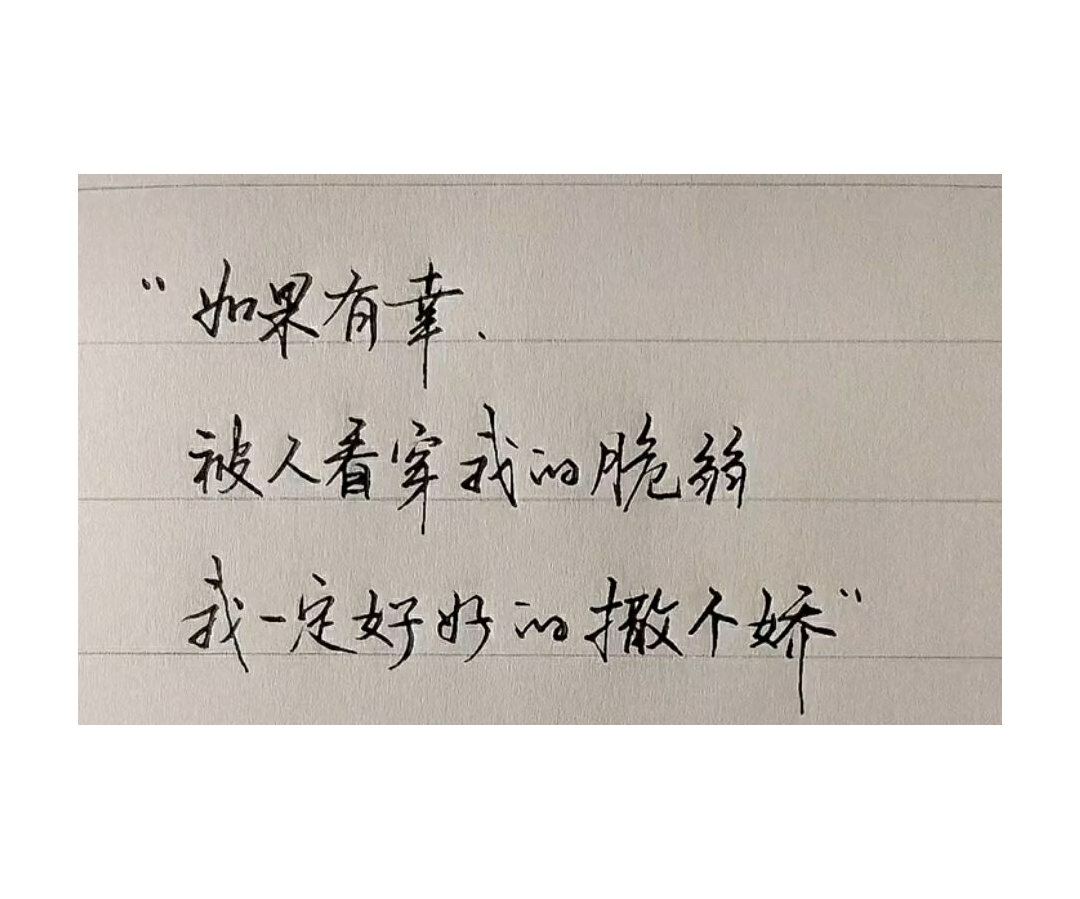 “如果有幸、
被人看穿我的脆弱
我一定好好的撒个娇”